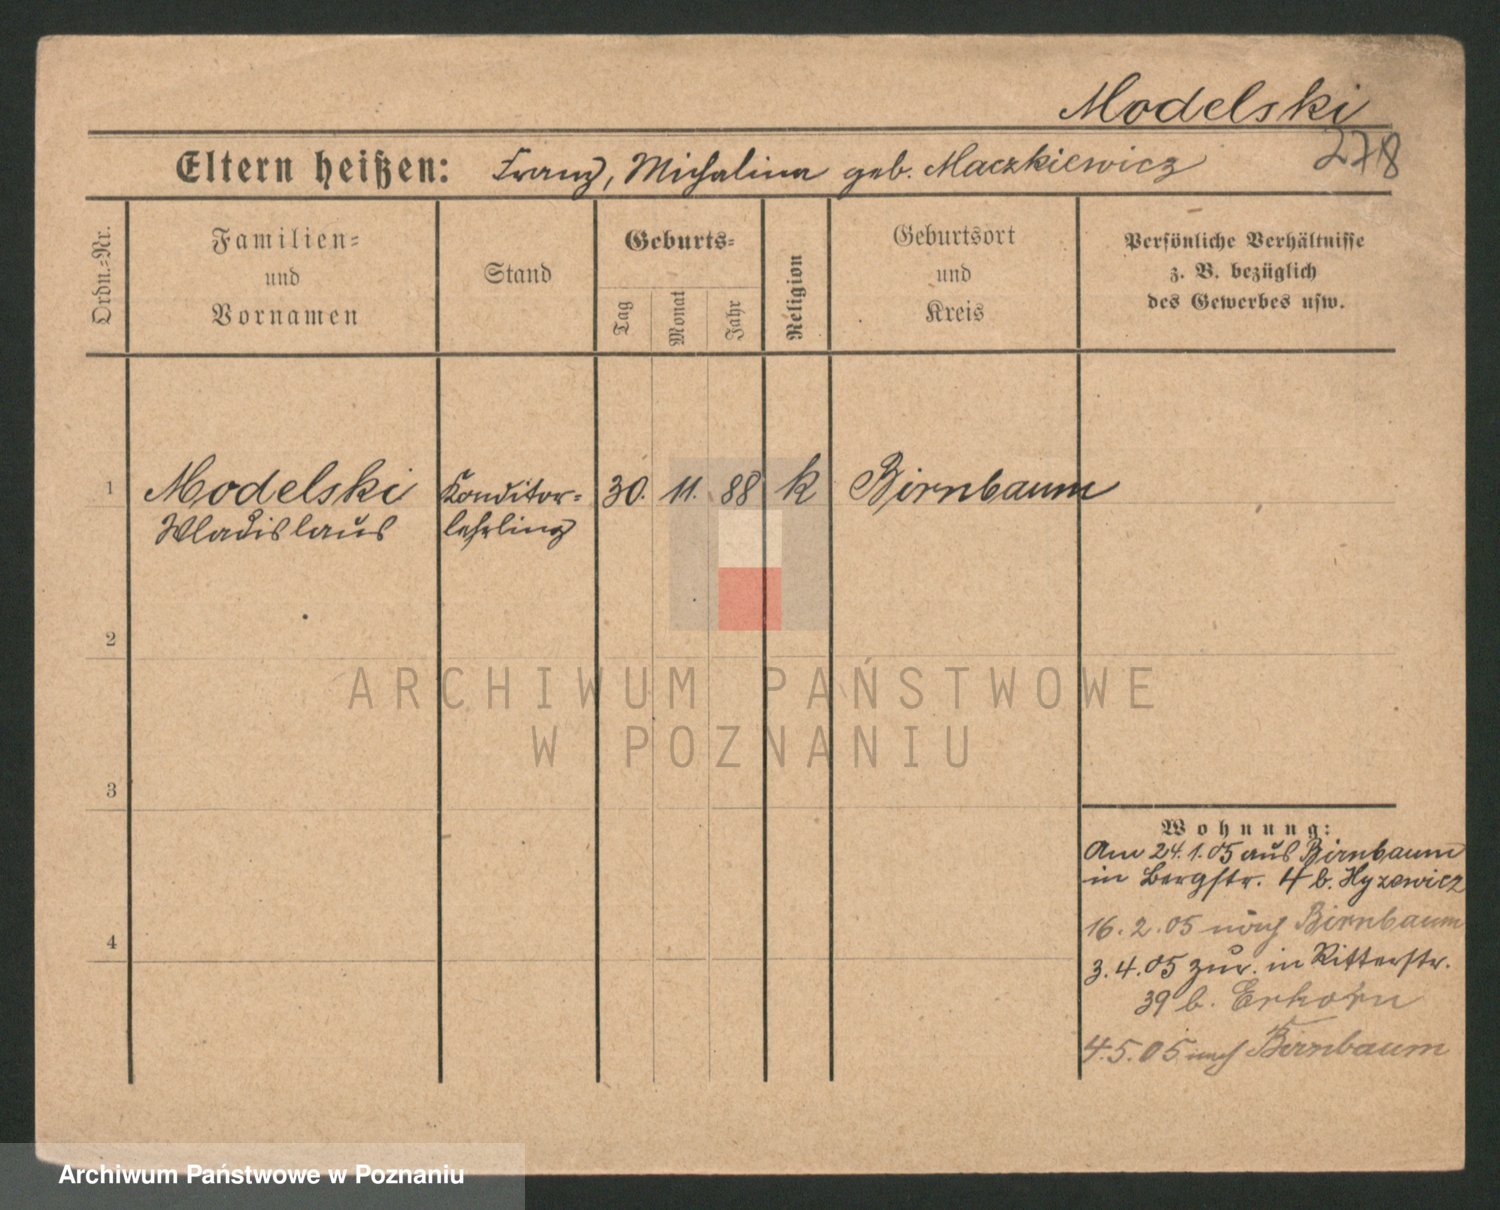 Modelski
278
Eltern heißen: Franz, Michalina geb. Maczkiewicz
Ordn.-Nr.
Familien-
und
Vornamen
Stand
Geburts-
Tag
Monat
Jahr
Religion
Geburtsort
und
Kreis
Persönliche Verhältnisse
z. B. bezüglich
des Gewerbes usw.
1 Modelski Konditor- 30. 11. 88 k Birnbaum
Wladislaus lehrling
2
ARCHIWUM PAŃSTWOWE
W POZNANIU
3
Wohnung:
Am 24.1.05 aus Birnbaum
in Bergstr. 4 b. Hyzewicz
16.2.05 nach Birnbaum
3.4.05 zur. in Ritterstr.
39 b. Erhorn
4
4.5.05 nach Birnbaum
Archiwum Państwowe w Poznaniu